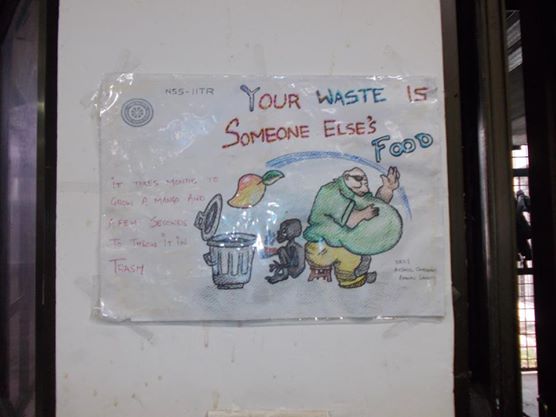 NSS-IITR
YOUR WASTE IS
SOMEONE ELSE'S
FOOD
IT TAKES MONTHS TO
GROW A MANGO AND
A FEW SECONDS
TO THROW IT IN
TRASH